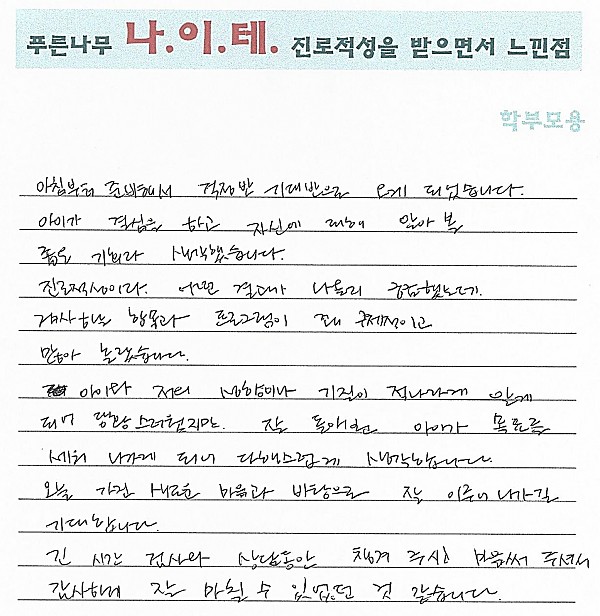 푸른나무 나.이.테. 진로적성을 받으면서 느낀점
학부모용
아침부터 준비해서 걱정반 기대반으로 오게 되었습니다.
아이가 결심을 하고 자신에 대해 알아 볼
좋은 기회라 생각했습니다.
진로적성이라. 어떤 결과가 나올지 궁금했는데.
검사하는 항목과 프로그램이 꽤 구체적이고
많아 놀랐습니다.
아이와 저의 성향이나 기질이 적나라하게 알게
되어 당황스러웠지만. 잘 돌아본 아이가 목표를
세워 나가게 되어 다행스럽게 생각합니다.
오늘 가진 새로운 마음과 바탕으로 잘 이루어나가길
기대합니다.
긴 시간 검사와 상담동안 챙겨 주시고 마음써 주셔서
감사하게 잘 마칠 수 있었던 것 같습니다.